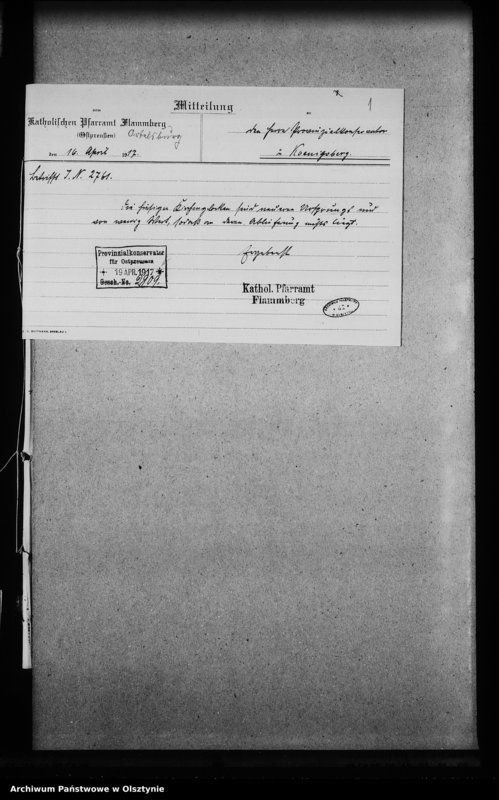 1
Mitteilung
vom
an
Katholischen Pfarramt Flammberg
(Ostpreußen)
Ortelsburg
den Herrn Provinzialkonservator
den 16. April 1917.
z. Koenigsberg.
Betrifft J. N. 2761.
Die hiesigen Kirchenglocken sind neueren Ursprungs und
von wenig Wert, sodaß an deren Ablieferung nichts liegt.
Ergebenst
Provinzialkonservator
für Ostpreussen
19 APR. 1917
Gesch.-No. 2909
Kathol. Pfarramt
Flammberg
Archiwum Państwowe w Olsztynie